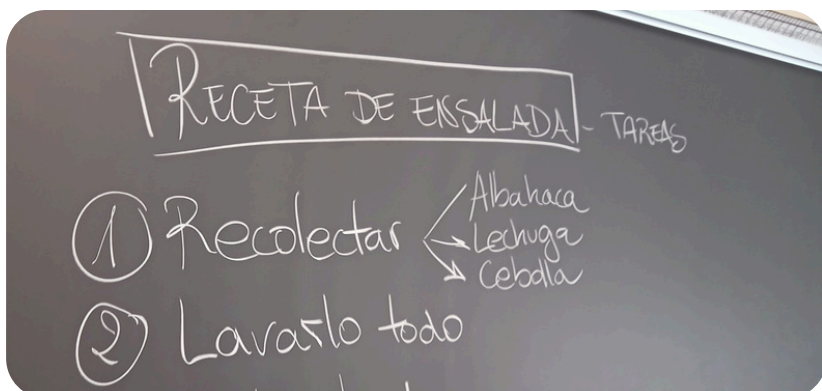 RECETA DE ENSALADA - TAREAS
1 Recolectar
Albahaca
Lechuga
Cebolla
2 Lavarlo todo